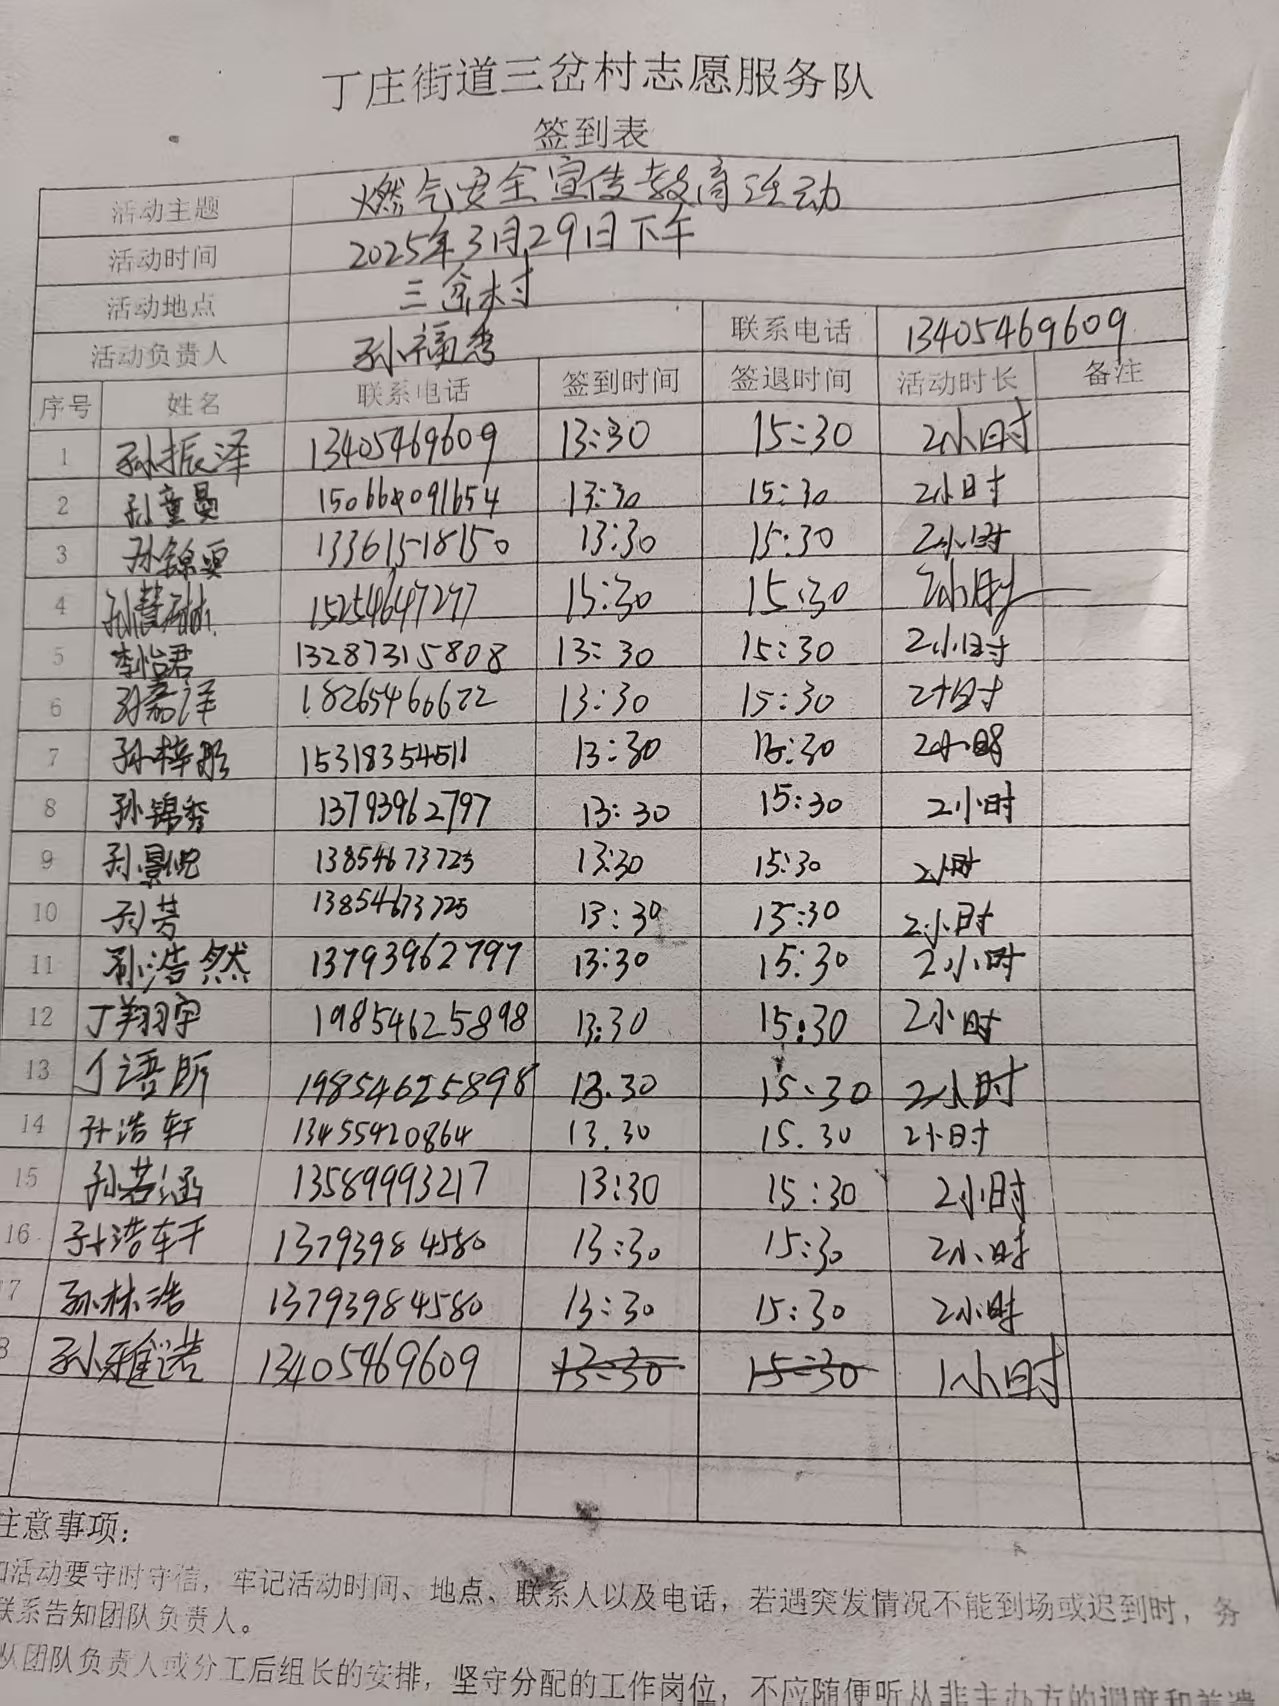 丁庄街道三岔村志愿服务队
签到表
活动主题 燃气安全宣传教育活动
活动时间 2025年3月29日下午
活动地点 三岔村
活动负责人 孙福秀 联系电话 13405469609
序号 姓名 联系电话 签到时间 签退时间 活动时长 备注
1 孙振泽 13405469609 13:30 15:30 2小时
2 孙童曼 13:30 15:30 2小时
3 13361518150 13:30 15:30 2小时
4 15254647277 15:30 15:30 2小时
5 李怡君 13287315808 13:30 15:30 2小时
6 孙嘉洋 18265466622 13:30 15:30 2小时
7 孙梓彤 15318354511 13:30 15:30 2小时
8 孙锦秀 13793962797 13:30 15:30 2小时
9 13854673725 13:30 15:30 2小时
10 孙芸 13854673725 13:30 15:30 2小时
11 孙浩然 13793962797 13:30 15:30 2小时
12 丁翔宇 19854625898 13:30 15:30 2小时
13 丁语昕 19854625898 13.30 15:30 2小时
14 孙浩轩 13455420864 13.30 15.30 2小时
15 孙若涵 13589993217 13:30 15:30 2小时
16 孙浩轩 13793984580 13:30 15:30 2小时
7 孙林浩 13793984580 13:30 15:30 2小时
8 孙雅诺 13405469609 13:30 15:30 1小时
注意事项：
加活动要守时守信，牢记活动时间、地点、联系人以及电话，若遇突发情况不能到场或迟到时，务
联系告知团队负责人。
从团队负责人或分工后组长的安排，坚守分配的工作岗位，不应随便听从非主办方的调度和差遣